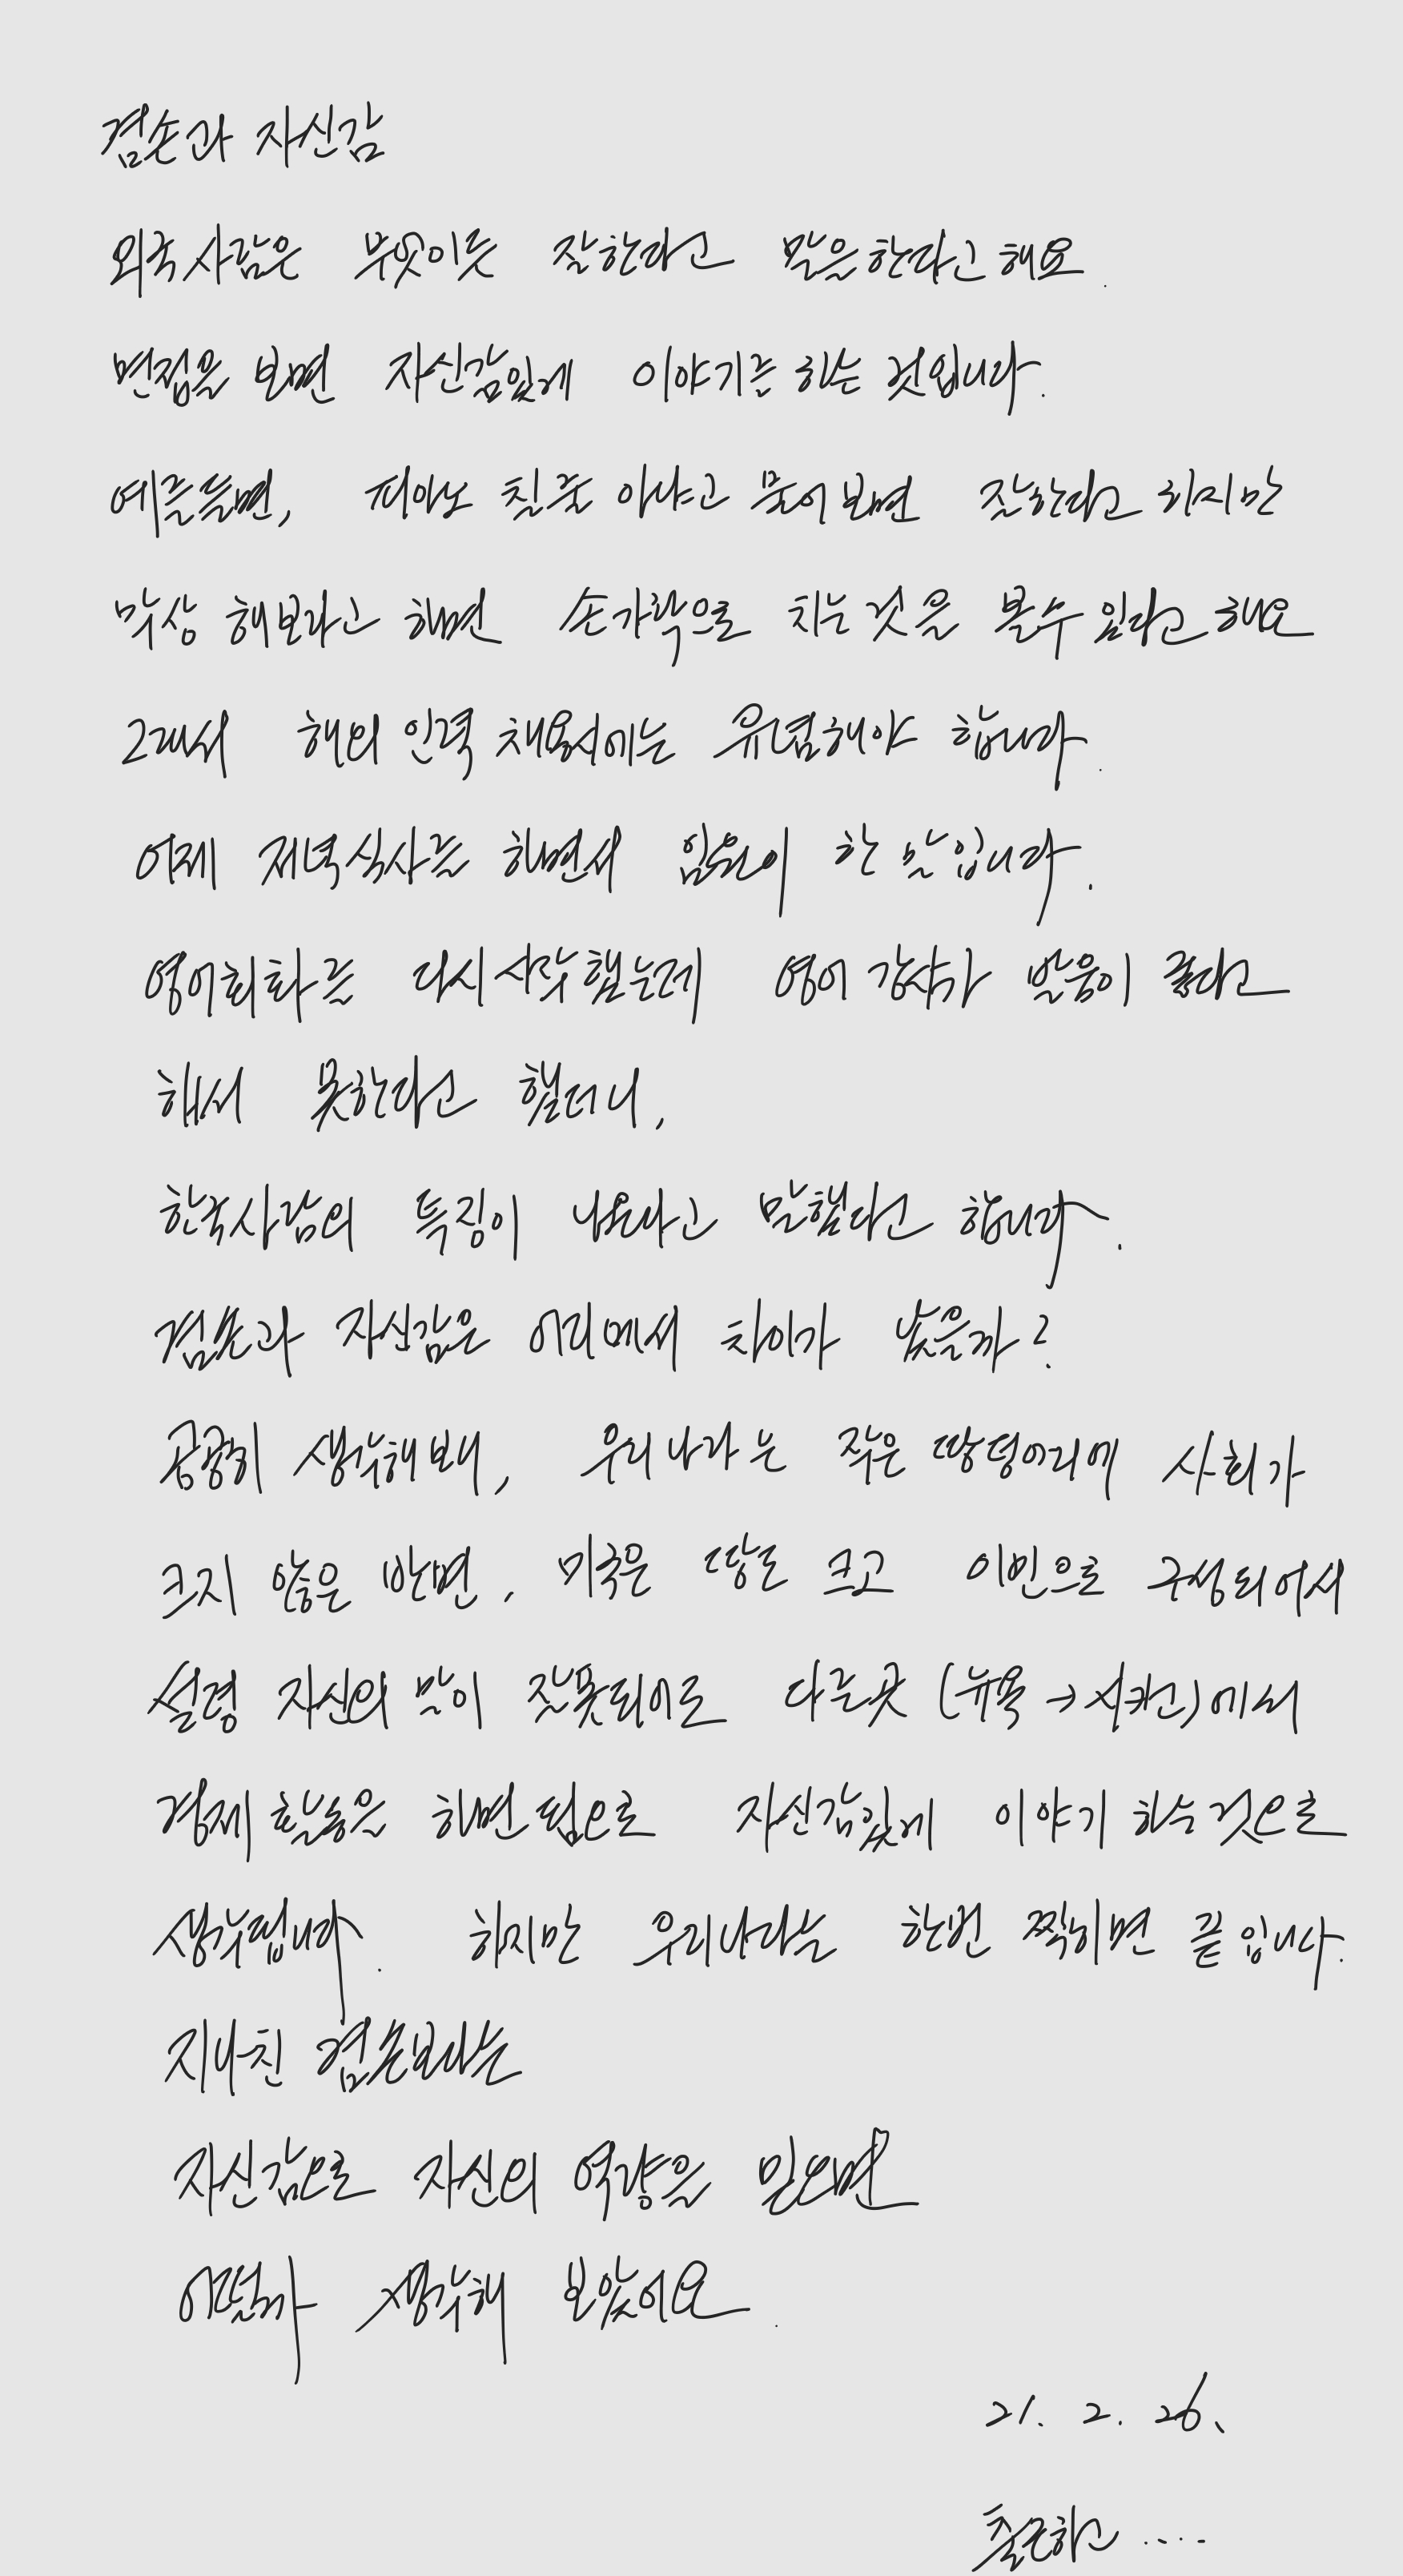 겸손과 자신감
외국사람은 무엇이든 잘한다고 말을한다고해요.
면접을 보면 자신감있게 이야기를 하는 것입니다.
예를들면, 피아노 칠줄 아냐고 물어보면 잘한다고 하지만
막상 해보라고 하면 손가락으로 치는것을 볼수있다고해요
그래서 해외인력 채용시에는 유념해야 합니다.
어제 저녁식사를 하면서 임원이 한 말입니다.
영어회화를 다시시작했는데 영어강사가 발음이 좋다고
해서 못한다고 했더니,
한국사람의 특징이 나온다고 말했다고 합니다.
겸손과 자신감은 어디에서 차이가 났을까?
곰곰히 생각해보니, 우리나라는 작은 땅덩어리에 사회가
크지 않은 반면, 미국은 땅도 크고 이민으로 구성되어서
설령 자신의 말이 잘못되어도 다른곳 (뉴욕→시카고)에서
경제활동을 하면 됨으로 자신감있게 이야기하는것으로
생각됩니다. 하지만 우리나라는 한번 찍히면 끝입니다.
지나친 겸손보다는
자신감으로 자신의 역량을 믿으면
어떨까 생각해 보았어요.
21. 2. 26.
출근하고 ....